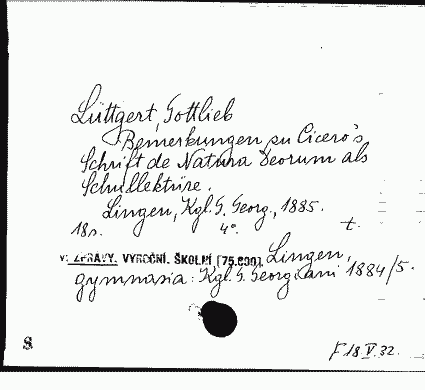 Lüttgert, Gottlieb
Bemerkungen zu Cicero's
Schrift de Natura Deorum als
Schullektüre.
Lingen, Kgl. G. Georg., 1885.
18s. 4°. t.
v: ZPRÁVY. VÝROČNÍ. ŠKOLNÍ [75.690]. Lingen,
gymnasia: Kgl. G. Georgianum 1884/5.
8
F 18.V.32.